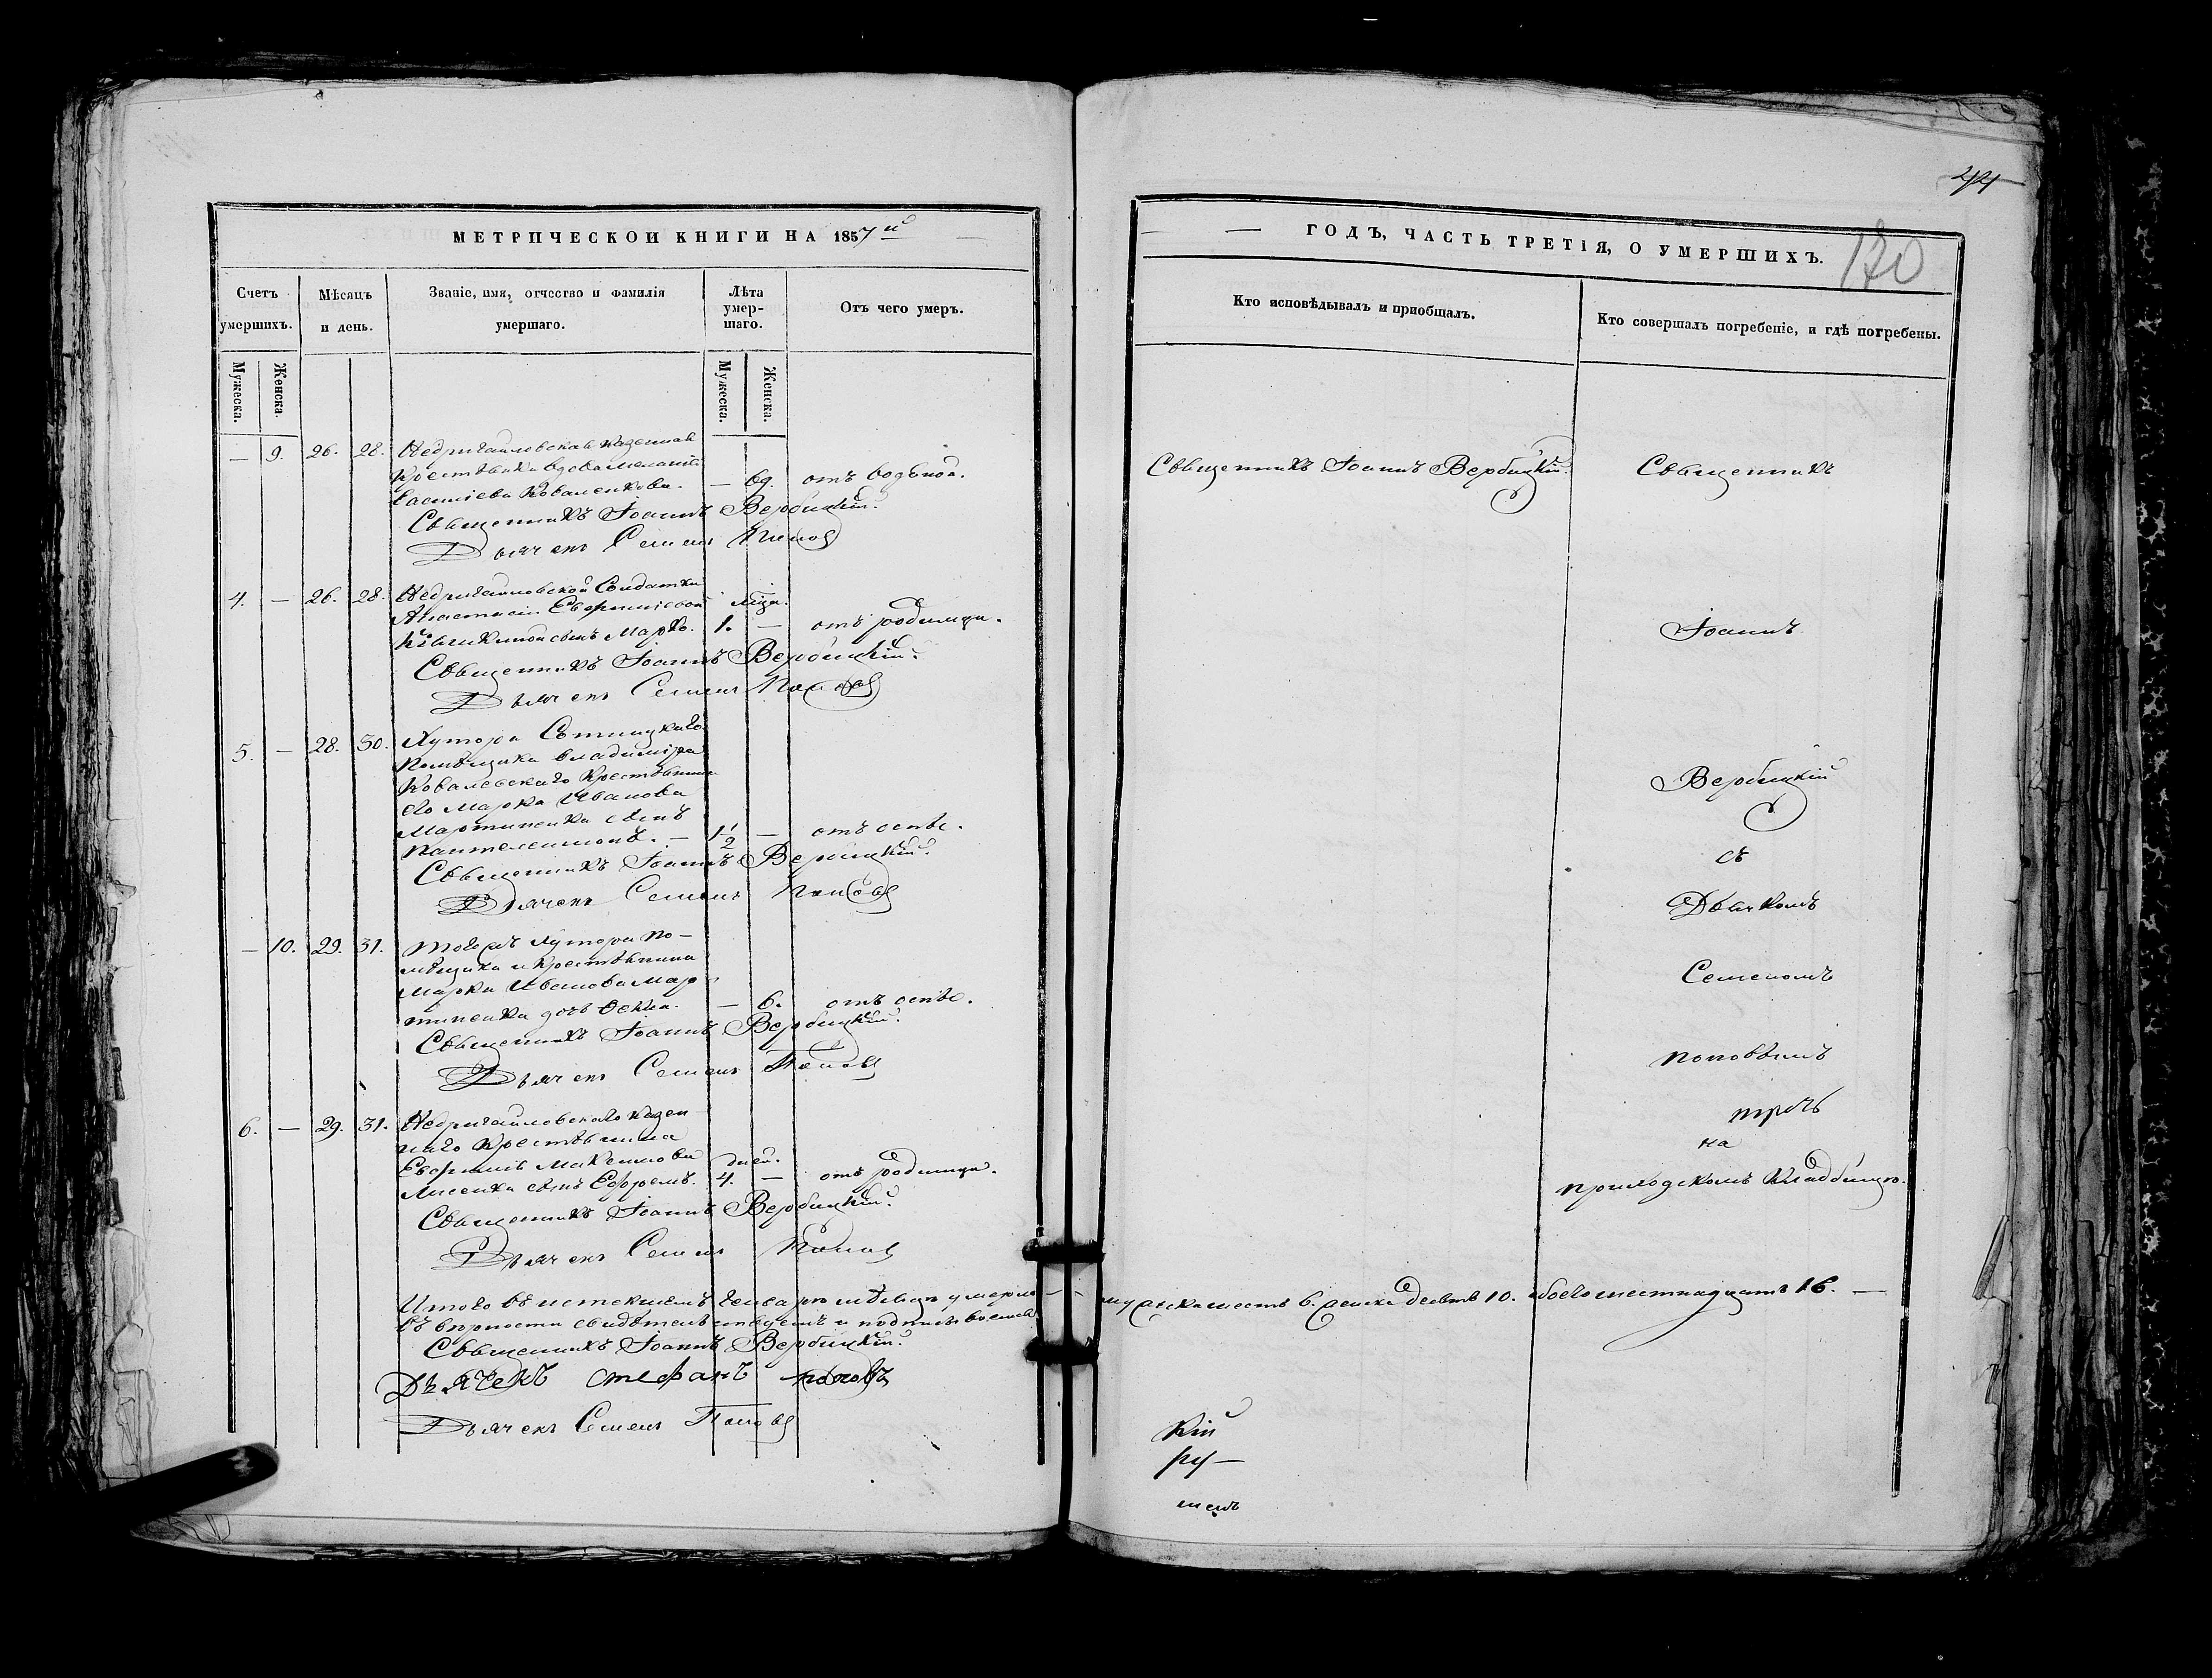 МЕТРИЧЕСКОЙ КНИГИ НА 1857й
Счетъ умершихъ.
Мѣсяцъ и день.
Званіе, имя, отчество и фамилія умершаго.
Лѣта умер-шаго.
Отъ чего умеръ.
Мужеска.
Женска.
Мужеска.
Женска.
— 9. 26. 28. Недригайловская казенная
Крестьянка вдова Меланія
Васильева Коваленкова. — 69. отъ водяной.
Священникъ Іоаннъ Вербицкій.
Дьячекъ Семенъ Поповъ
4. — 26. 28. Недригайловской Солдатки
Анастасіи Евфиміевой мѣця.
сынъ Марко. 1. — отъ родимца.
Священникъ Іоаннъ Вербицкій.
Дьячекъ Семенъ Поповъ
5. — 28. 30. Хутора
Помѣщика Владиміра
Ковалевскаго Крестьянина
его Марка Иванова
Мартиненка сынъ
Пантелеимонъ. — 1 1/2 — отъ оспы.
Священникъ Іоаннъ Вербицкій.
Дьячекъ Семенъ Поповъ
— 10. 29. 31. Тогожъ Хутора По-
мѣщика и Крестьянина
Марка Иванова Мар-
тиненка дочь Ѳекла. — 6. отъ оспы.
Священникъ Іоаннъ Вербицкій.
Дьячекъ Семенъ Поповъ
6. — 29. 31. Недригайловскаго казен-
наго Крестьянина
Евфимія Максимова дней.
Лисенка сынъ Ефремъ. 4. — отъ родимца.
Священникъ Іоаннъ Вербицкій.
Дьячекъ Семенъ Поповъ
Итого въ истекшемъ Генварѣ мѣсяцѣ умерло —
въ вѣрности свидѣтельствуемъ и подписуемся
Священникъ Іоаннъ Вербицкій.
Дьячекъ Стефанъ Поповъ
Дьячекъ Семенъ Поповъ
44
170
ГОДЪ, ЧАСТЬ ТРЕТІЯ, О УМЕРШИХЪ.
Кто исповѣдывалъ и пріобщалъ.
Кто совершалъ погребеніе, и гдѣ погребены.
Священникъ Іоаннъ Вербицкій.
Священникъ
Іоаннъ
Вербицкій
съ
Дьячкомъ
Семеномъ
Поповымъ
на
приходскомъ Кладбищѣ.
мужеска шесть 6. женска десять 10. обоего шестнадцать 16. —
кій
ру—